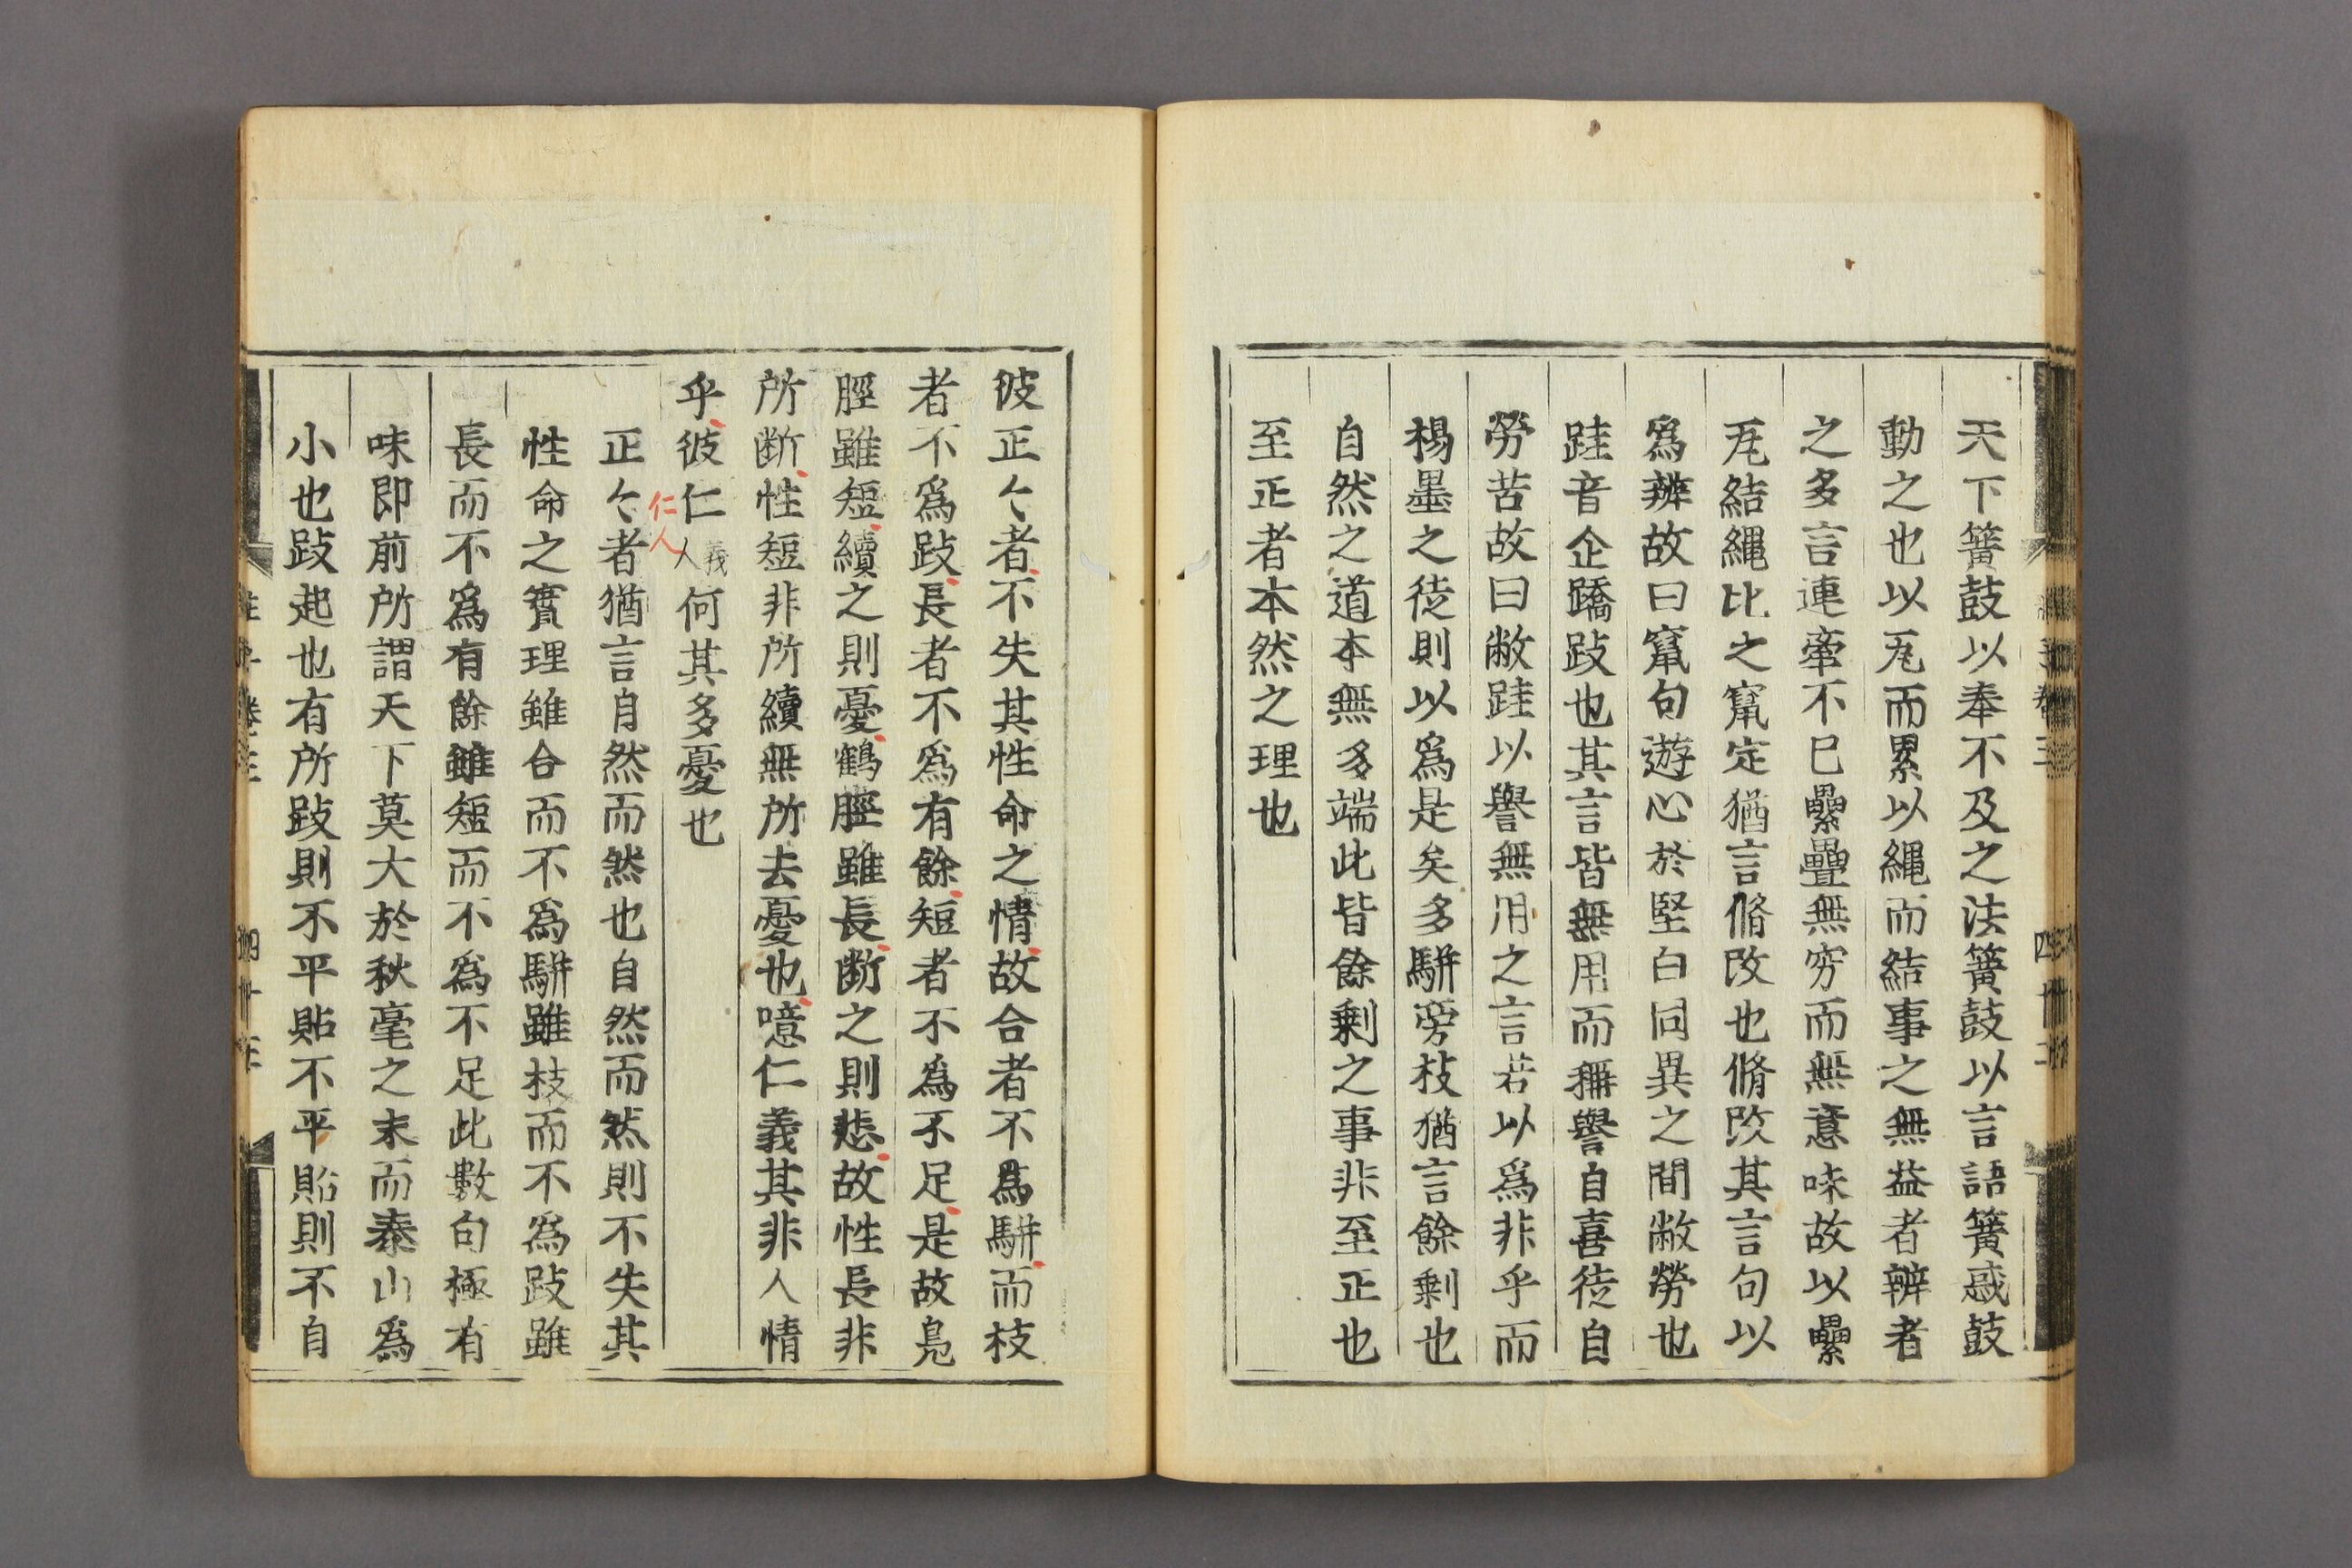 天下簧鼓以奉不及之法簧鼓以言語簧惑鼓
動之也以瓦而累以繩而結事之無益者辨者
之多言連牽不已纍疊無窮而無意味故以纍
瓦結繩比之竄定猶言脩改也脩改其言句以
為辨故曰竄句遊心於堅白同異之間敝勞也
跬音企蹻跂也其言皆無用而稱譽自喜徒自
勞苦故曰敝跬以譽無用之言若以為非乎而
楊墨之徒則以為是矣多駢旁枝猶言餘剩也
自然之道本無多端此皆餘剩之事非至正也
至正者本然之理也
彼正々者不失其性命之情故合者不為駢而枝
者不為跂長者不為有餘短者不為不足是故鳧
脛雖短續之則憂鶴脛雖長断之則悲故性長非
所断性短非所續無所去憂也噫仁義其非人情
乎彼仁義人何其多憂也
仁人
正々者猶言自然而然也自然而然則不失其
性命之實理雖合而不為駢雖枝而不為跂雖
長而不為有餘雖短而不為不足此數句極有
味即前所謂天下莫大於秋毫之末而泰山為
小也跂起也有所跂則不平貼不平貼則不自